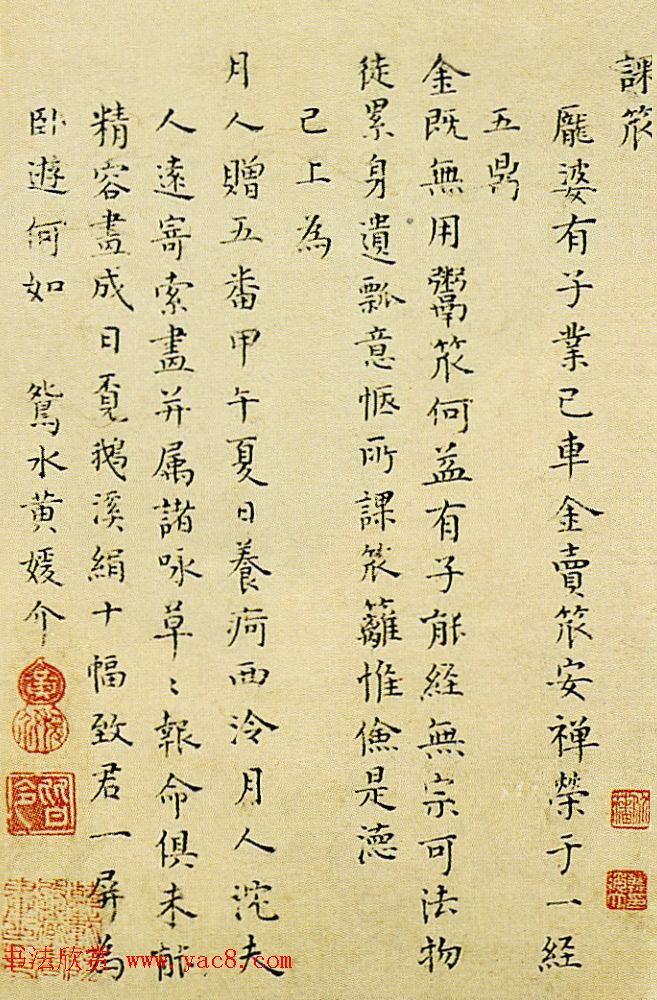 課笊
龐婆有子業已車金賣笊安禪榮于一經
五鼎
金既無用鬻笊何益有子能經無宗可法物
徒累身遺瓢意愜所課笊籬惟儉是德
已上為
月人贈五番甲午夏日養疴西泠月人沱夫
人遠寄索畫并属諸咏草〻報命俱未能
精容畫成日覓鵝溪絹十幅致君一屏為
卧遊何如 鴛水黃媛介
皆令
书法欣赏 www.yac8.com